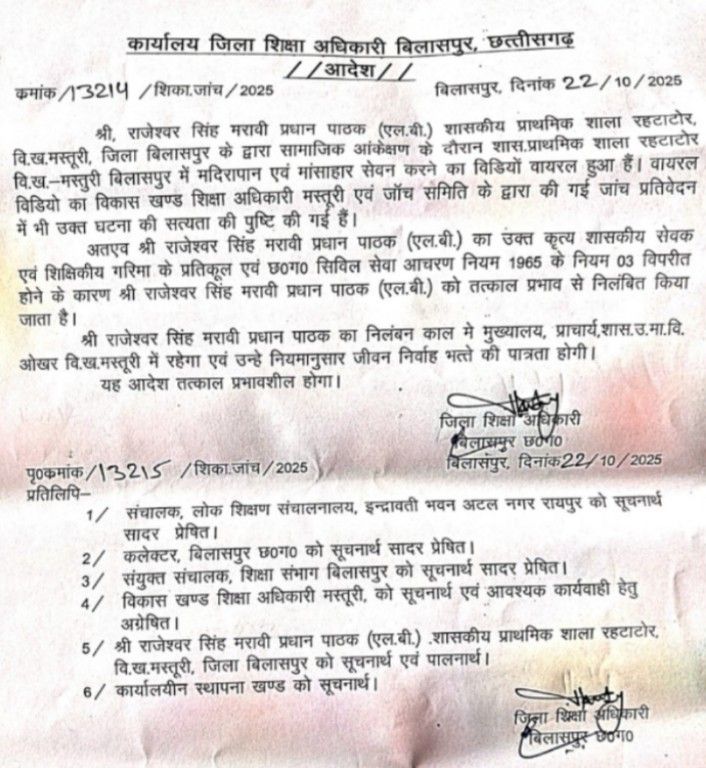 कार्यालय जिला शिक्षा अधिकारी बिलासपुर, छत्तीसगढ़
//आदेश//
कमांक/13214/शिका.जांच/2025 बिलासपुर, दिनांक 22/10/2025
श्री, राजेश्वर सिंह मरावी प्रधान पाठक (एल.बी.) शासकीय प्राथमिक शाला रहटाटोर,
वि.ख.मस्तूरी, जिला बिलासपुर के द्वारा सामाजिक आंकेक्षण के दौरान शास.प्राथमिक शाला रहटाटोर
वि.ख.–मस्तुरी बिलासपुर में मदिरापान एवं मांसाहार सेवन करने का विडियों वायरल हुआ हैं। वायरल
विडियो का विकास खण्ड शिक्षा अधिकारी मस्तूरी एवं जॉच समिति के द्वारा की गई जांच प्रतिवेदन
में भी उक्त घटना की सत्यता की पुष्टि की गई हैं।
अतएव श्री राजेश्वर सिंह मरावी प्रधान पाठक (एल.बी.) का उक्त कृत्य शासकीय सेवक
एवं शिक्षिकीय गरिमा के प्रतिकूल एवं छ0ग0 सिविल सेवा आचरण नियम 1965 के नियम 03 विपरीत
होने के कारण श्री राजेश्वर सिंह मरावी प्रधान पाठक (एल.बी.) को तत्काल प्रभाव से निलंबित किया
जाता है।
श्री राजेश्वर सिंह मरावी प्रधान पाठक का निलंबन काल मे मुख्यालय, प्राचार्य,शास.उ.मा.वि.
ओखर वि.ख.मस्तूरी में रहेगा एवं उन्हे नियमानुसार जीवन निर्वाह भत्ते की पात्रता होगी।
यह आदेश तत्काल प्रभावशील होगा।
जिला शिक्षा अधिकारी
बिलासपुर छ0ग0
पृ0कमांक/13215/शिका.जांच/2025 बिलासपुर, दिनांक22/10/2025
प्रतिलिपि–
1/ संचालक, लोक शिक्षण संचालनालय, इन्द्रावती भवन अटल नगर रायपुर को सूचनार्थ
सादर प्रेषित।
2/ कलेक्टर, बिलासपुर छ0ग0 को सूचनार्थ सादर प्रेषित।
3/ संयुक्त संचालक, शिक्षा संभाग बिलासपुर को सूचनार्थ सादर प्रेषित।
4/ विकास खण्ड शिक्षा अधिकारी मस्तूरी, को सूचनार्थ एवं आवश्यक कार्यवाही हेतु
अग्रेषित।
5/ श्री राजेश्वर सिंह मरावी प्रधान पाठक (एल.बी.) .शासकीय प्राथमिक शाला रहटाटोर,
वि.ख.मस्तूरी, जिला बिलासपुर को सूचनार्थ एवं पालनार्थ।
6/ कार्यालयीन स्थापना खण्ड को सूचनार्थ।
जिला शिक्षा अधिकारी
बिलासपुर छ0ग0